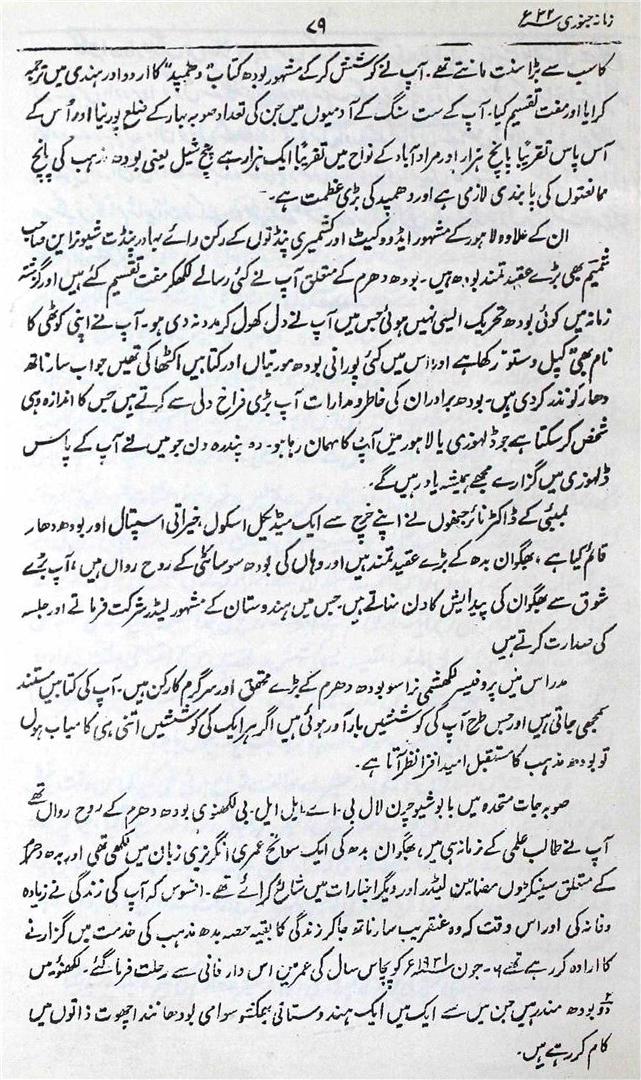 زمانہ جنوری ۳۲ء
۷۹
کا سب سے بڑا سنت مانتے تھے۔ آپ نے کوشش کر کے مشہور بودھ کتاب "دھمپد" کا اردو اور ہندی میں ترجمہ
کرایا اور مفت تقسیم کیا۔ آپ کے ست سنگ کے آدمیوں میں جن کی تعداد صوبہ بہار کے ضلع پورنیا اور اُس کے
آس پاس تقریباً پانچ ہزار اور مراد آباد کے نواح میں تقریباً ایک ہزار ہے پنچ شیل یعنی بودھ مذہب کی پانچ
ممانعتوں کی پابندی لازمی ہے اور دھمپد کی بڑی عظمت ہے۔
ان کے علاوہ لاہور کے مشہور ایڈووکیٹ اور کشمیری پنڈتوں کے رکن رائے بہادر پنڈت شیو نراین صاحب
شمیم بھی بڑے عقیدتمند بودھ ہیں۔ بودھ دھرم کے متعلق آپ نے کئی رسالے لکھکر مفت تقسیم کئے ہیں اور گذشتہ
زمانہ میں کوئی بودھ تحریک ایسی نہیں ہوئی جس میں آپ نے دل کھول کر مدد نہ دی ہو۔ آپ نے اپنی کوٹھی کا
نام بھی کپل وستو رکھا ہے اور اس میں کئی پورانی بودھ مورتیاں اور کتابیں اکٹھا کی تھیں جو اب سارناتھ
دھار کو نذر کر دی ہیں۔ بودھ برادران کی خاطر و مدارات آپ بڑی فراخ دلی سے کرتے ہیں جس کا اندازہ وہی
شخص کر سکتا ہے جو ڈلہوزی یا لاہور میں آپ کا مہمان رہا ہو۔ وہ پندرہ دن جو میں نے آپ کے پاس
ڈلہوزی میں گزارے مجھے ہمیشہ یاد رہیں گے۔
بمبئی کے ڈاکٹر نائر جنھوں نے اپنے خرچ سے ایک میڈیکل اسکول، خیراتی اسپتال اور بودھ دھار
قائم کیا ہے، بھگوان بدھ کے بڑے عقیدتمند ہیں اور وہاں کی بودھ سوسائٹی کے روح رواں ہیں، آپ بڑے
شوق سے بھگوان کی پیدایش کا دن مناتے ہیں جس میں ہندوستان کے مشہور لیڈر شرکت فرماتے اور جلسہ
کی صدارت کرتے ہیں
مدراس میں پروفیسر لکھشمی نراسو بودھ دھرم کے بڑے محقق اور سرگرم کارکن ہیں۔ آپ کی کتابیں مستند
سمجھی جاتی ہیں اور جس طرح آپ کی کوششیں بارآور ہوئی ہیں اگر ہر ایک کی کوششیں اتنی ہی کامیاب ہوں
تو بودھ مذہب کا مستقبل امید افزا نظر آتا ہے۔
صوبہ جات متحدہ میں بابو شیو چرن لال بی۔ اے۔ ایل ایل۔ بی لکھنوی بودھ دھرم کے روح رواں تھے
آپ نے طالب علمی کے زمانہ ہی میں، بھگوان بدھ کی ایک سوانح عمری انگریزی زبان میں لکھی تھی اور بدھ دھرم
کے متعلق سینکڑوں مضامین لیڈر اور دیگر اخبارات میں شایع کرائے تھے۔ افسوس کہ آپ کی زندگی نے زیادہ
وفا نہ کی اور اس وقت کہ وہ عنقریب سارناتھ جا کر زندگی کا بقیہ حصہ بدھ مذہب کی خدمت میں گزارنے
کا ارادہ کر رہے تھے ۶۔ جون ۱۹۳۱ء کو پچاس سال کی عمر میں اس دار فانی سے رحلت فرما گئے۔ لکھنؤ میں
دو بودھ مندر ہیں جن میں سے ایک میں ایک ہندوستانی بھکشو سوامی بودھانند اچھوت ذاتوں میں
کام کر رہے ہیں۔